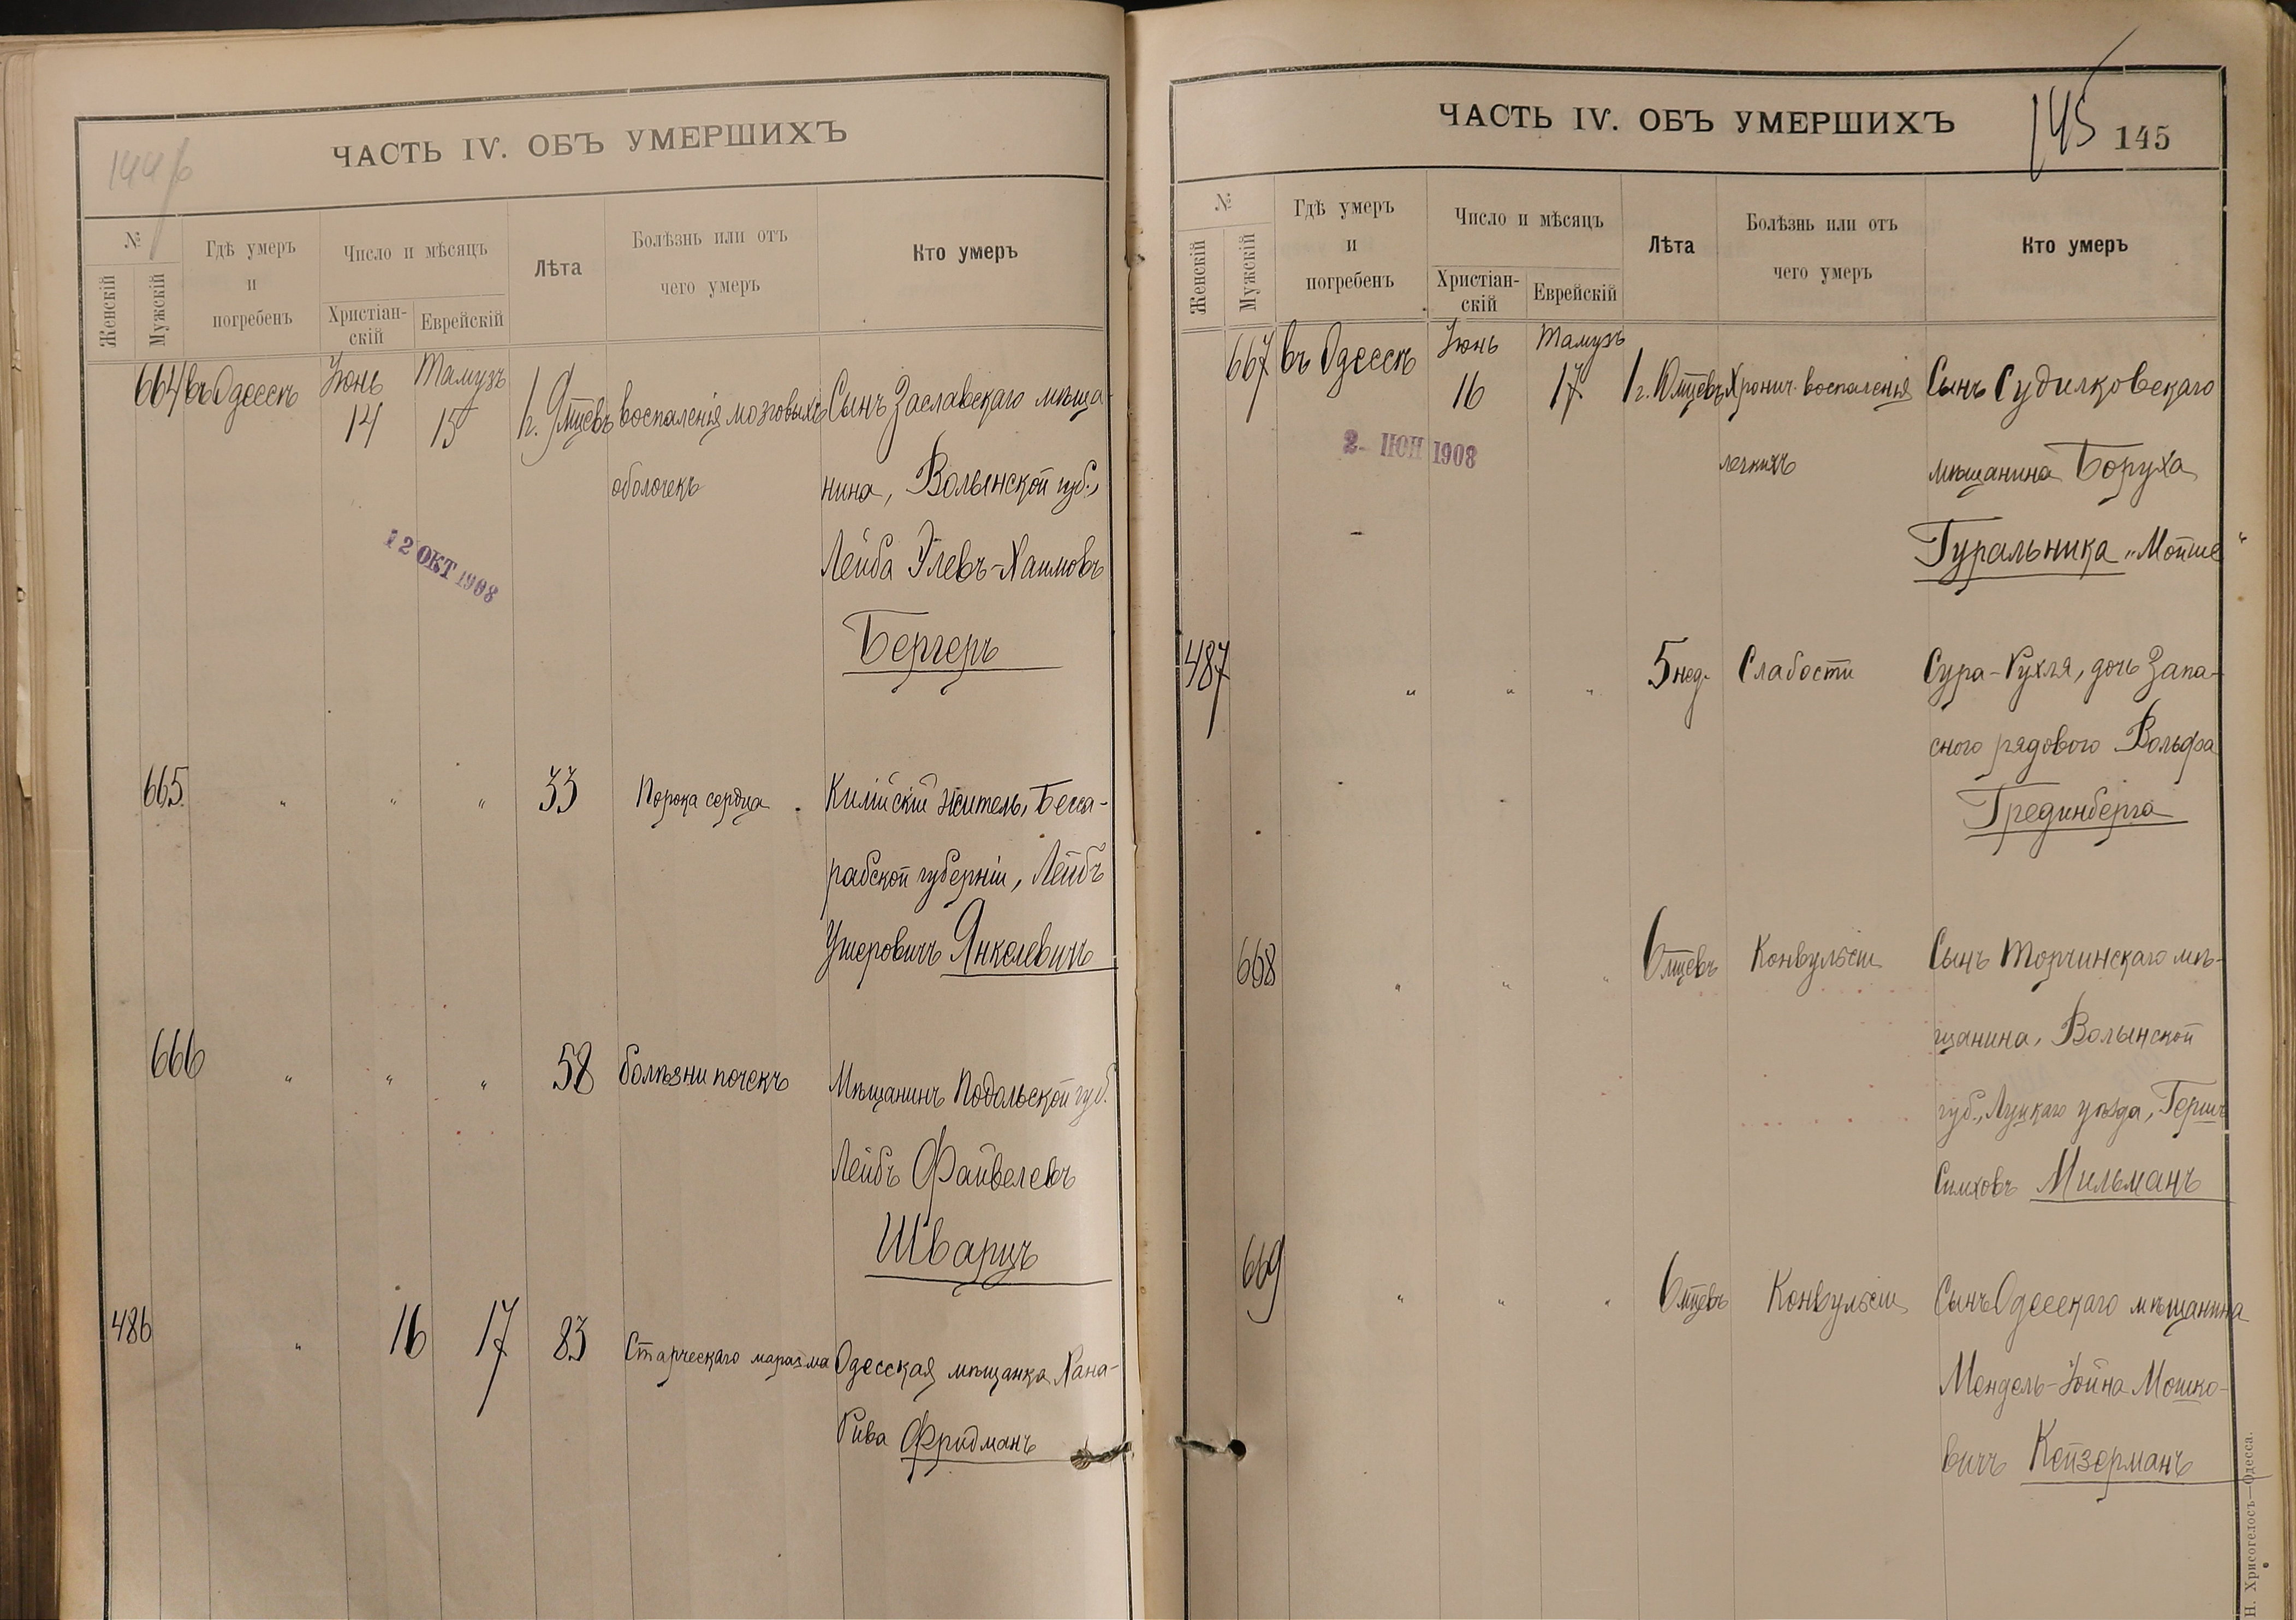 144 б
ЧАСТЬ IV. ОБЪ УМЕРШИХЪ
№
Женскій
Мужскій
Гдѣ умеръ
и
погребенъ
Число и мѣсяцъ
Христіан-
скій
Еврейскій
Лѣта
Болѣзнь или отъ
чего умеръ
Кто умеръ
664 въ Одессѣ Іюнь 14 Тамузъ 15 1 г. 9 мцевъ воспаленія мозговыхъ Сынъ Заславскаго мѣща-
оболочекъ нина, Волынской губ.,
12 ОКТ 1908
Лейба Улевъ-Хаимовъ
Бергеръ
665 " " " 33 Порока сердца Килійскій житель, Бесса-
рабской губерніи, Лейбъ
Ушеровичъ Янкелевичъ
666 " " " 58 болѣзни почекъ Мѣщанинъ Подольской губ.
Лейбъ Файвелевъ
Шварцъ
486 " 16 17 83 Старческаго маразма Одесская мѣщанка Хана-
Рива Фридманъ
145
ЧАСТЬ IV. ОБЪ УМЕРШИХЪ
145
№
Женскій
Мужскій
Гдѣ умеръ
и
погребенъ
Число и мѣсяцъ
Христіан-
скій
Еврейскій
Лѣта
Болѣзнь или отъ
чего умеръ
Кто умеръ
667 въ Одессѣ Іюнь 16 Тамузъ 17 1 г. 10 мцевъ Хронич. воспаленія Сынъ Судилковскаго
2- ІЮН 1908
легкихъ мѣщанина Боруха
Гуральника „Мойше"
487 " " " 5 нед. Слабости Сура-Рухля, дочь Запа-
сного рядового Вольфа
Грединберга
668 " " " 6 мцевъ Конвульсіи Сынъ Торчинскаго мѣ-
щанина, Волынской
губ., Луцкаго уѣзда, Гершъ
Симховъ Мильманъ
669 " " " 6 мцевъ Конвульсіи Сынъ Одесскаго мѣщанина
Мендель-Іойна Мошко-
вичъ Кейзерманъ
Н. Хрисогелосъ—Одесса.